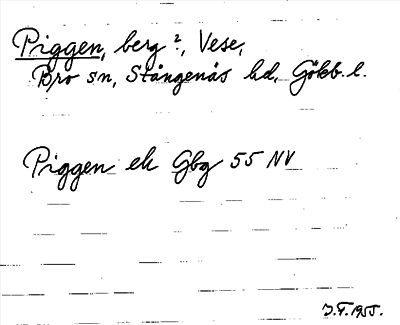 Piggen, berg ?, Vese,
Bro sn, Stångenäs hd, Göbb. l.
Piggen ek Gbg 55 NV
J.F. 1955.